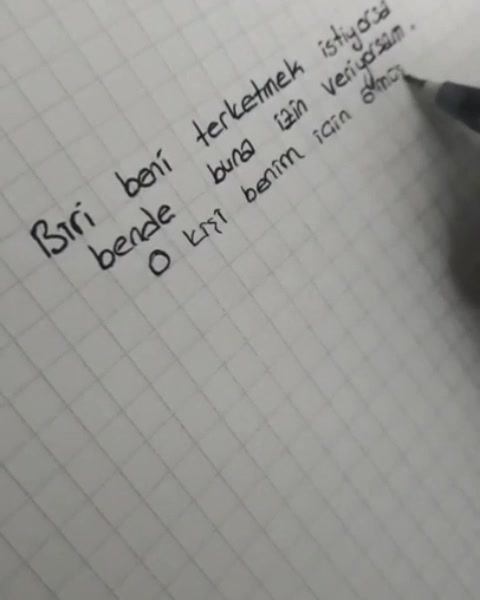 Biri beni terketmek istiyorsa
bende buna izin veriyorsam.
O kişi benim için ölmüş